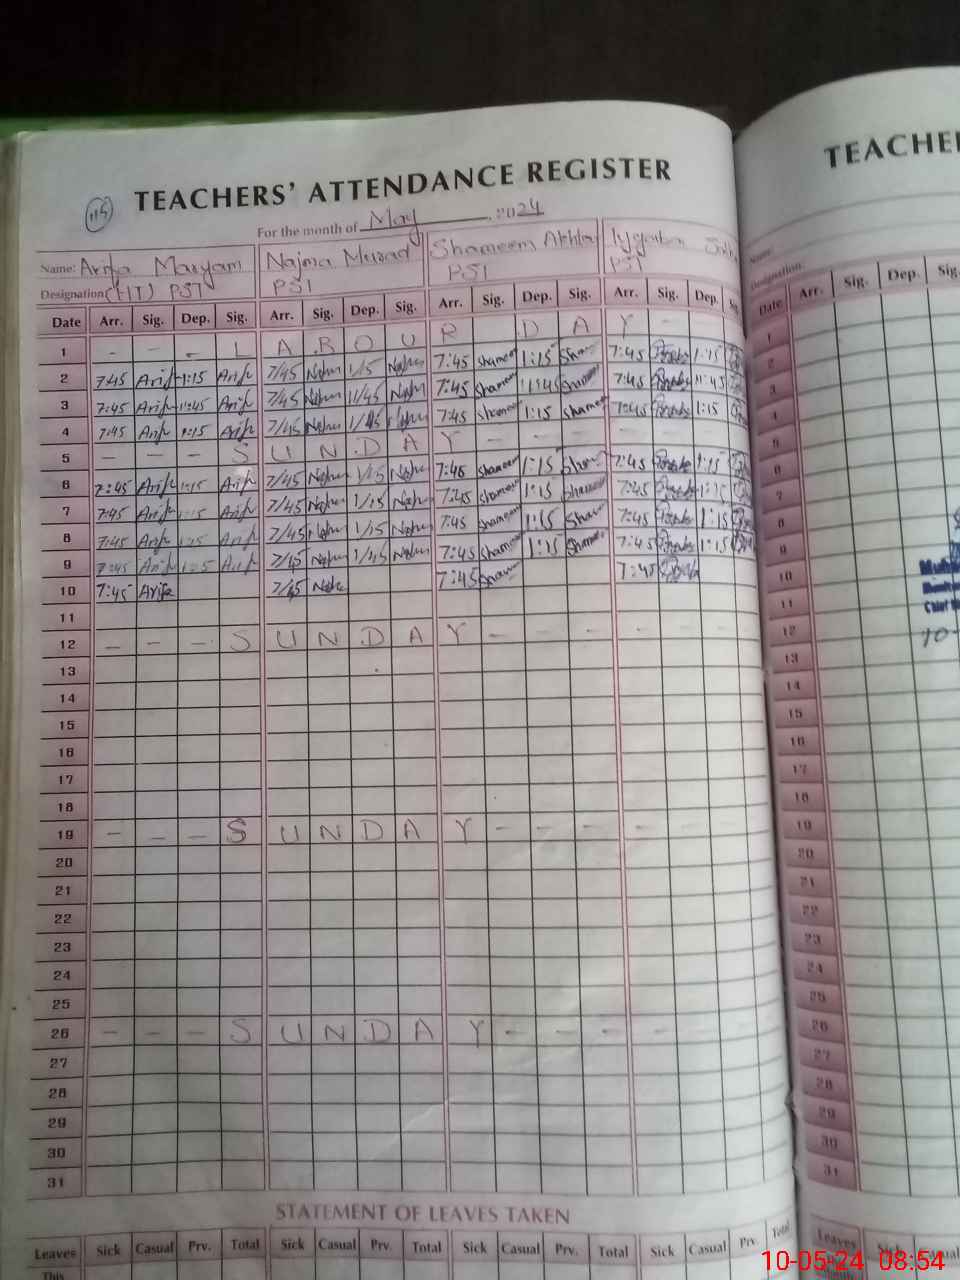 TEACHERS' ATTENDANCE REGISTER
TEACHE
115
For the month of May, 2024
Name: Arifa Maryam Najma Murad Shameem Akhtar
Name:
Designation (HT) PST PST PST PST
Designation:
Date Arr. Sig. Dep. Sig. Arr. Sig. Dep. Sig. Arr. Sig. Dep. Sig. Arr. Sig. Dep. Sig. Date Arr. Sig. Dep. Sig.
1 - - - L A B O U R D A Y - 1
2 7:45 Arifa 1:15 Arifa 7/45 Najma 1/15 Najma 7:45 Shameem 1:15 Sham 7:45 1:15 2
3 7:45 Arifa 11:45 Arifa 7/45 Najma 11/45 Najma 7:45 Shameem 11:45 Shameem 7:45 11:45 3
4 7:45 Arifa 1:15 Arifa 7/45 Najma Najma 7:45 Shameem 1:15 Shameem 7:45 1:15 4
5 - - - S U N D A Y - - - - - - 5
6 7:45 Arifa 1:15 Arifa 7/45 Najma 1/15 Najma 7:45 Shameem 1:15 Sham 7:45 1:15 6
7 7:45 Arifa 1:15 Arifa 7/45 Najma 1/15 Najma 7:45 Shameem 1:15 Shameem 7:45 1:15 7
8 7:45 Arifa Arifa 7/45 Najma 1/15 Najma 7:45 Shameem 1:15 Sham 7:45 1:15 8
9 7:45 Arifa Arifa 7/45 Najma Najma 7:45 Shameem 1:15 Shameem 7:45 1:15 9
10 7:45 Arifa 7/45 Najma 7:45 Sham 7:45 10
11 11
12 - - - S U N D A Y - - - - - - 12
10-
13 13
14 14
15 15
16 16
17 17
18 18
19 - - - S U N D A Y - - - - - - 19
20 20
21 21
22 22
23 23
24 24
25 25
26 - - - S U N D A Y - - - - - - 26
27 27
28 28
29 29
30 30
31 31
STATEMENT OF LEAVES TAKEN
Leaves Sick Casual Prv. Total Sick Casual Prv. Total Sick Casual Prv. Total Sick Casual Prv. Total Leaves Sick Casual Prv.
This
10-05-24 08:54